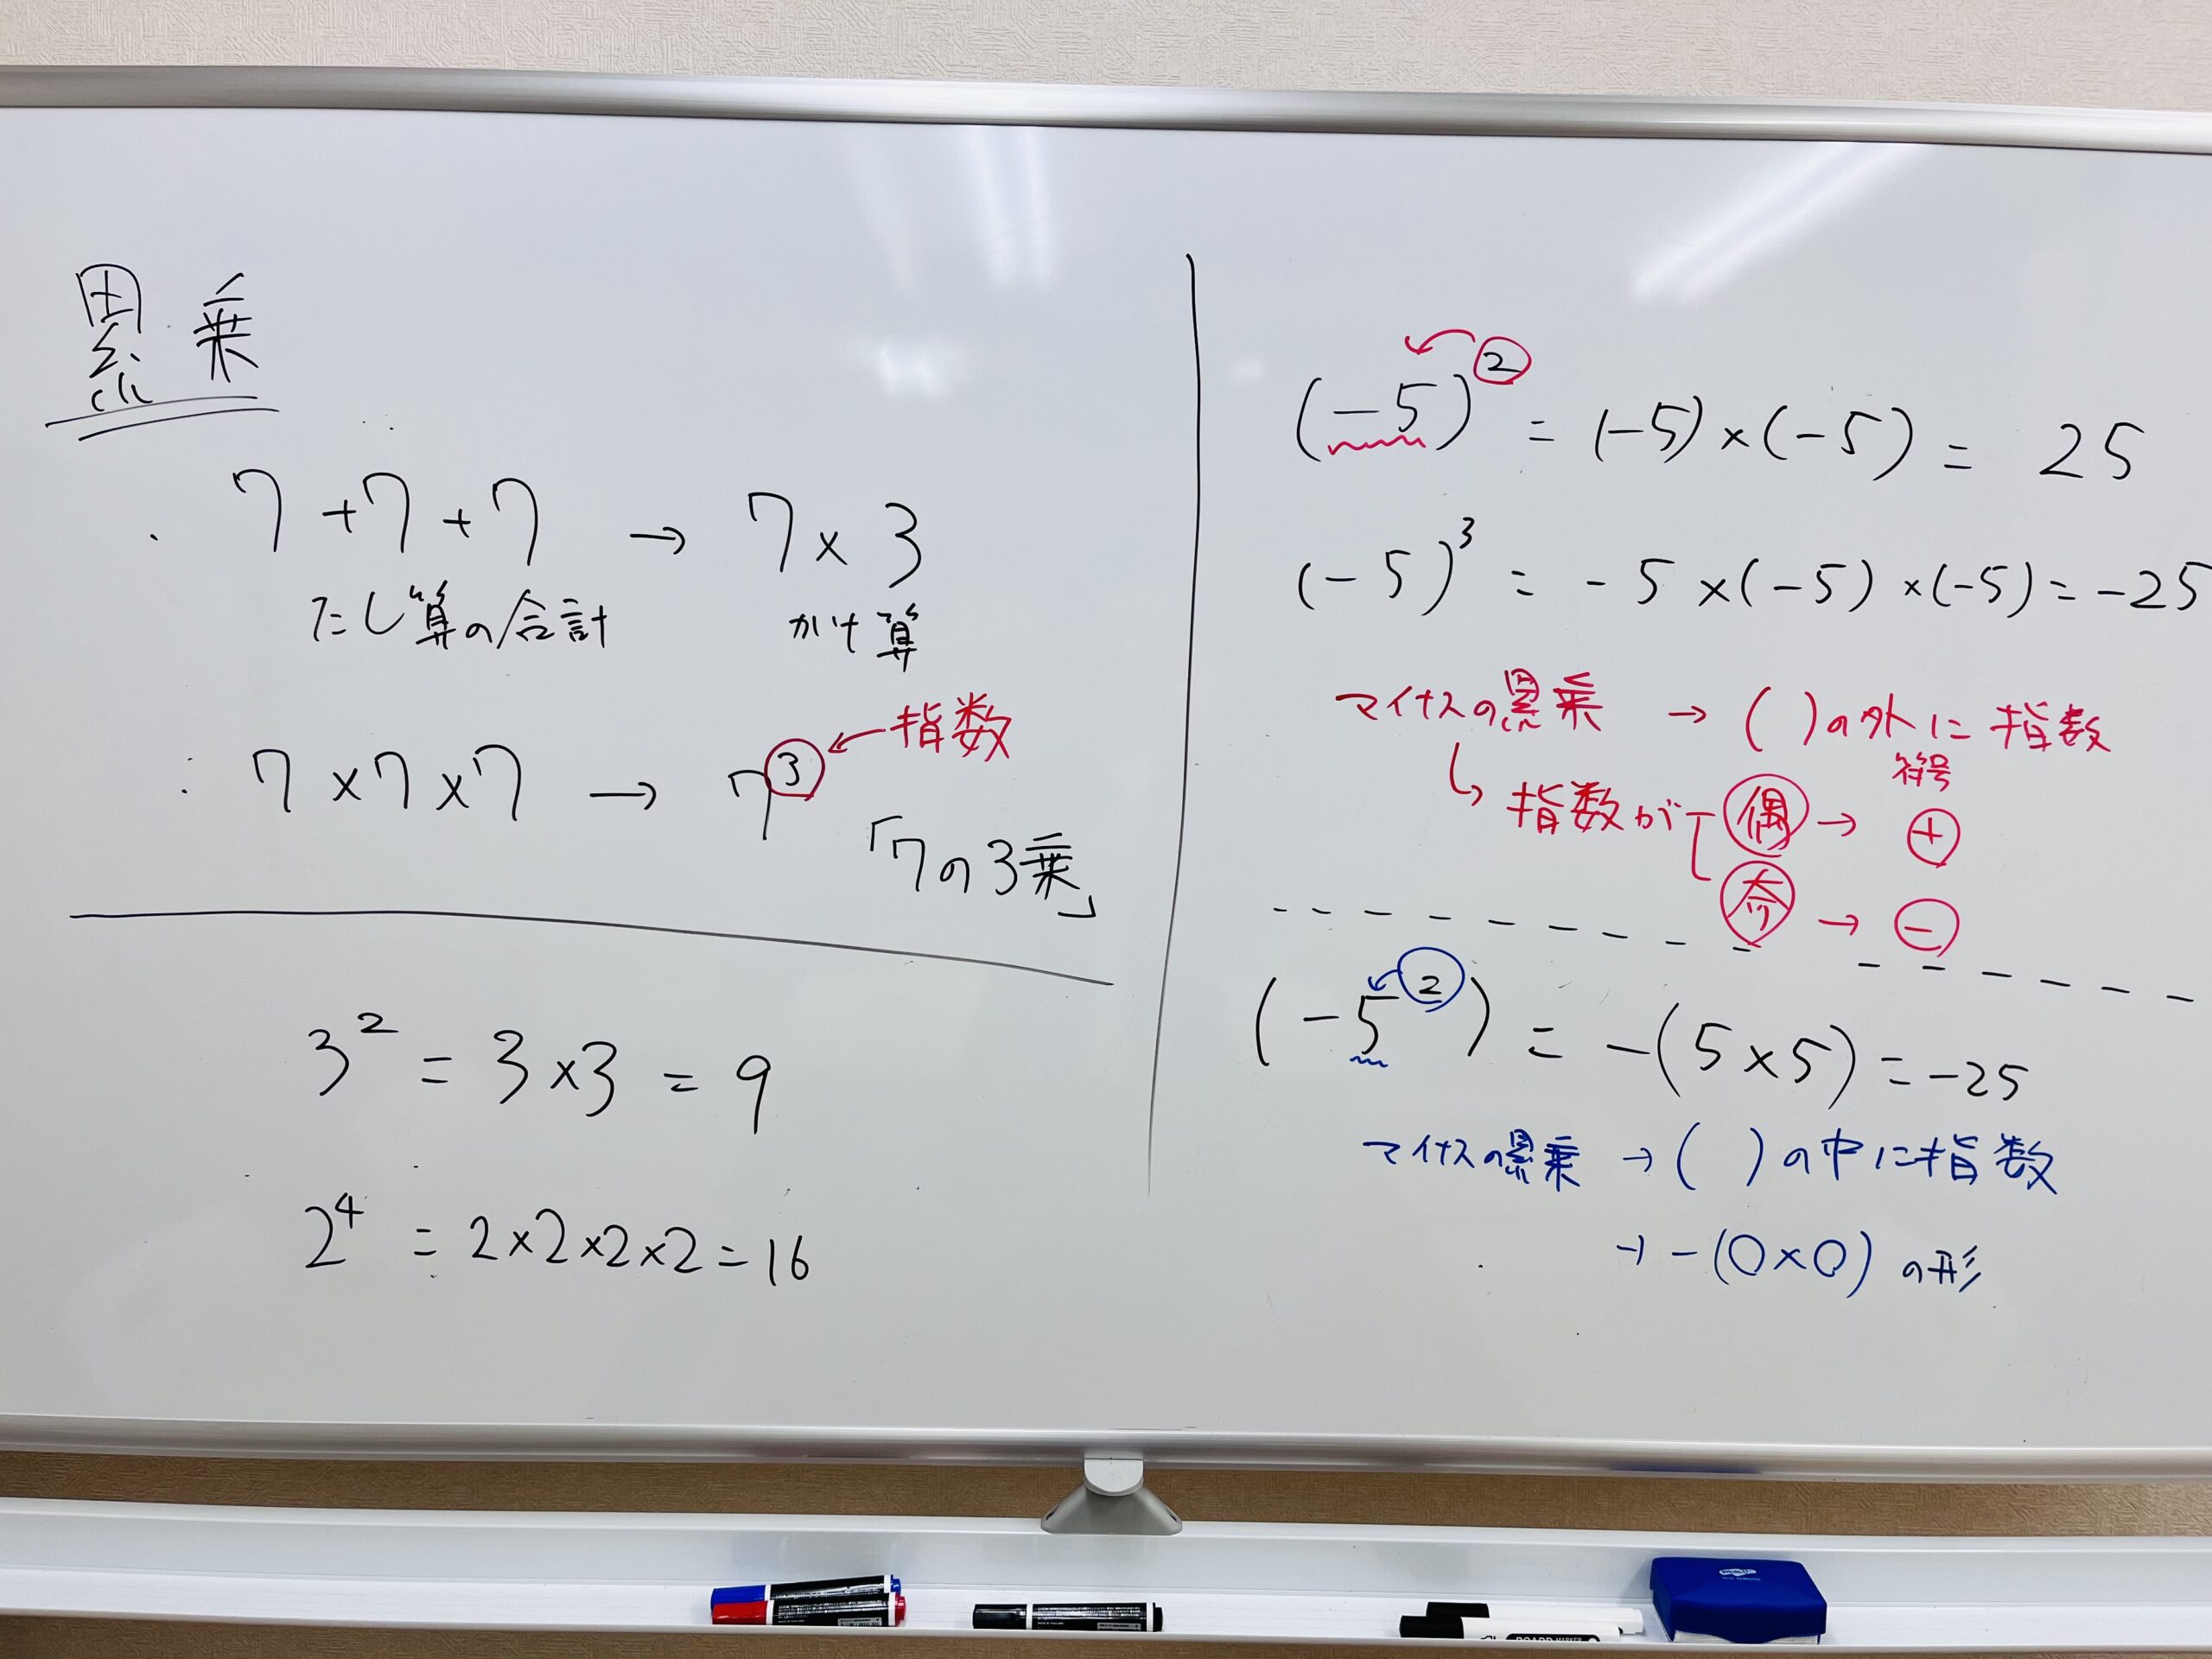 累乗
・ 7+7+7 → 7×3
たし算の合計 かけ算
・ 7×7×7 → 7³ ← 指数
「7の3乗」
3² = 3×3 = 9
2⁴ = 2×2×2×2=16
(-5)² = (-5)×(-5) = 25
(-5)³ = -5×(-5)×(-5)=-25
マイナスの累乗 → ( )の外に指数
符号
↳ 指数が 偶 → +
奇 → −
(-5²) = -(5×5) = -25
マイナスの累乗 → ( )の中に指数
→ -(○×○) の形
BOARD MARKER